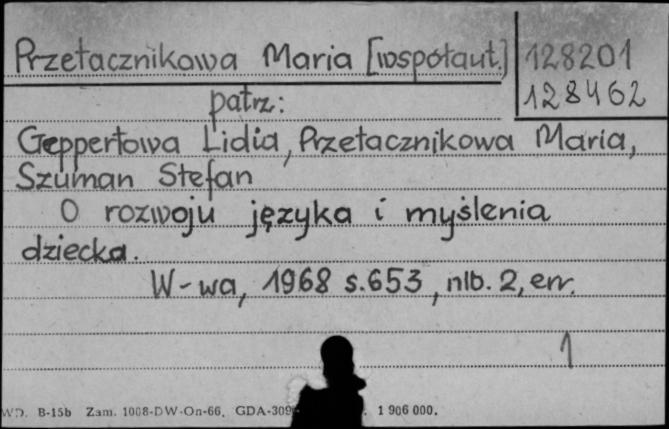 Przetacznikowa Maria [współaut.] 128201
128462
patrz:
Geppertowa Lidia, Przetacznikowa Maria,
Szuman Stefan
O rozwoju języka i myślenia
dziecka.
W-wa, 1968 s.653, nlb. 2, err.
1
WD. B-15b Zam. 1008-DW-On-66. GDA-309 1 906 000.